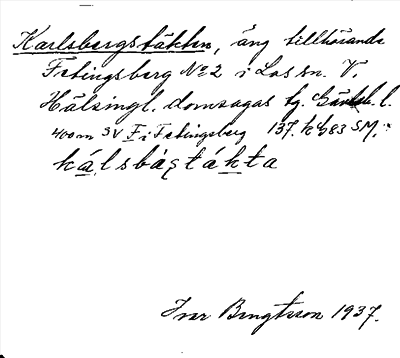 Karlsbergstäkten, äng tillhörande
Fetingsberg No 2 i Los sn. V.
Hälsingl. domsagas tg. Gävleb. l.
400 m SV F i Fetingsberg 137. k b83 SM.
kálsbàstákta
Ivar Bengtsson 1937.